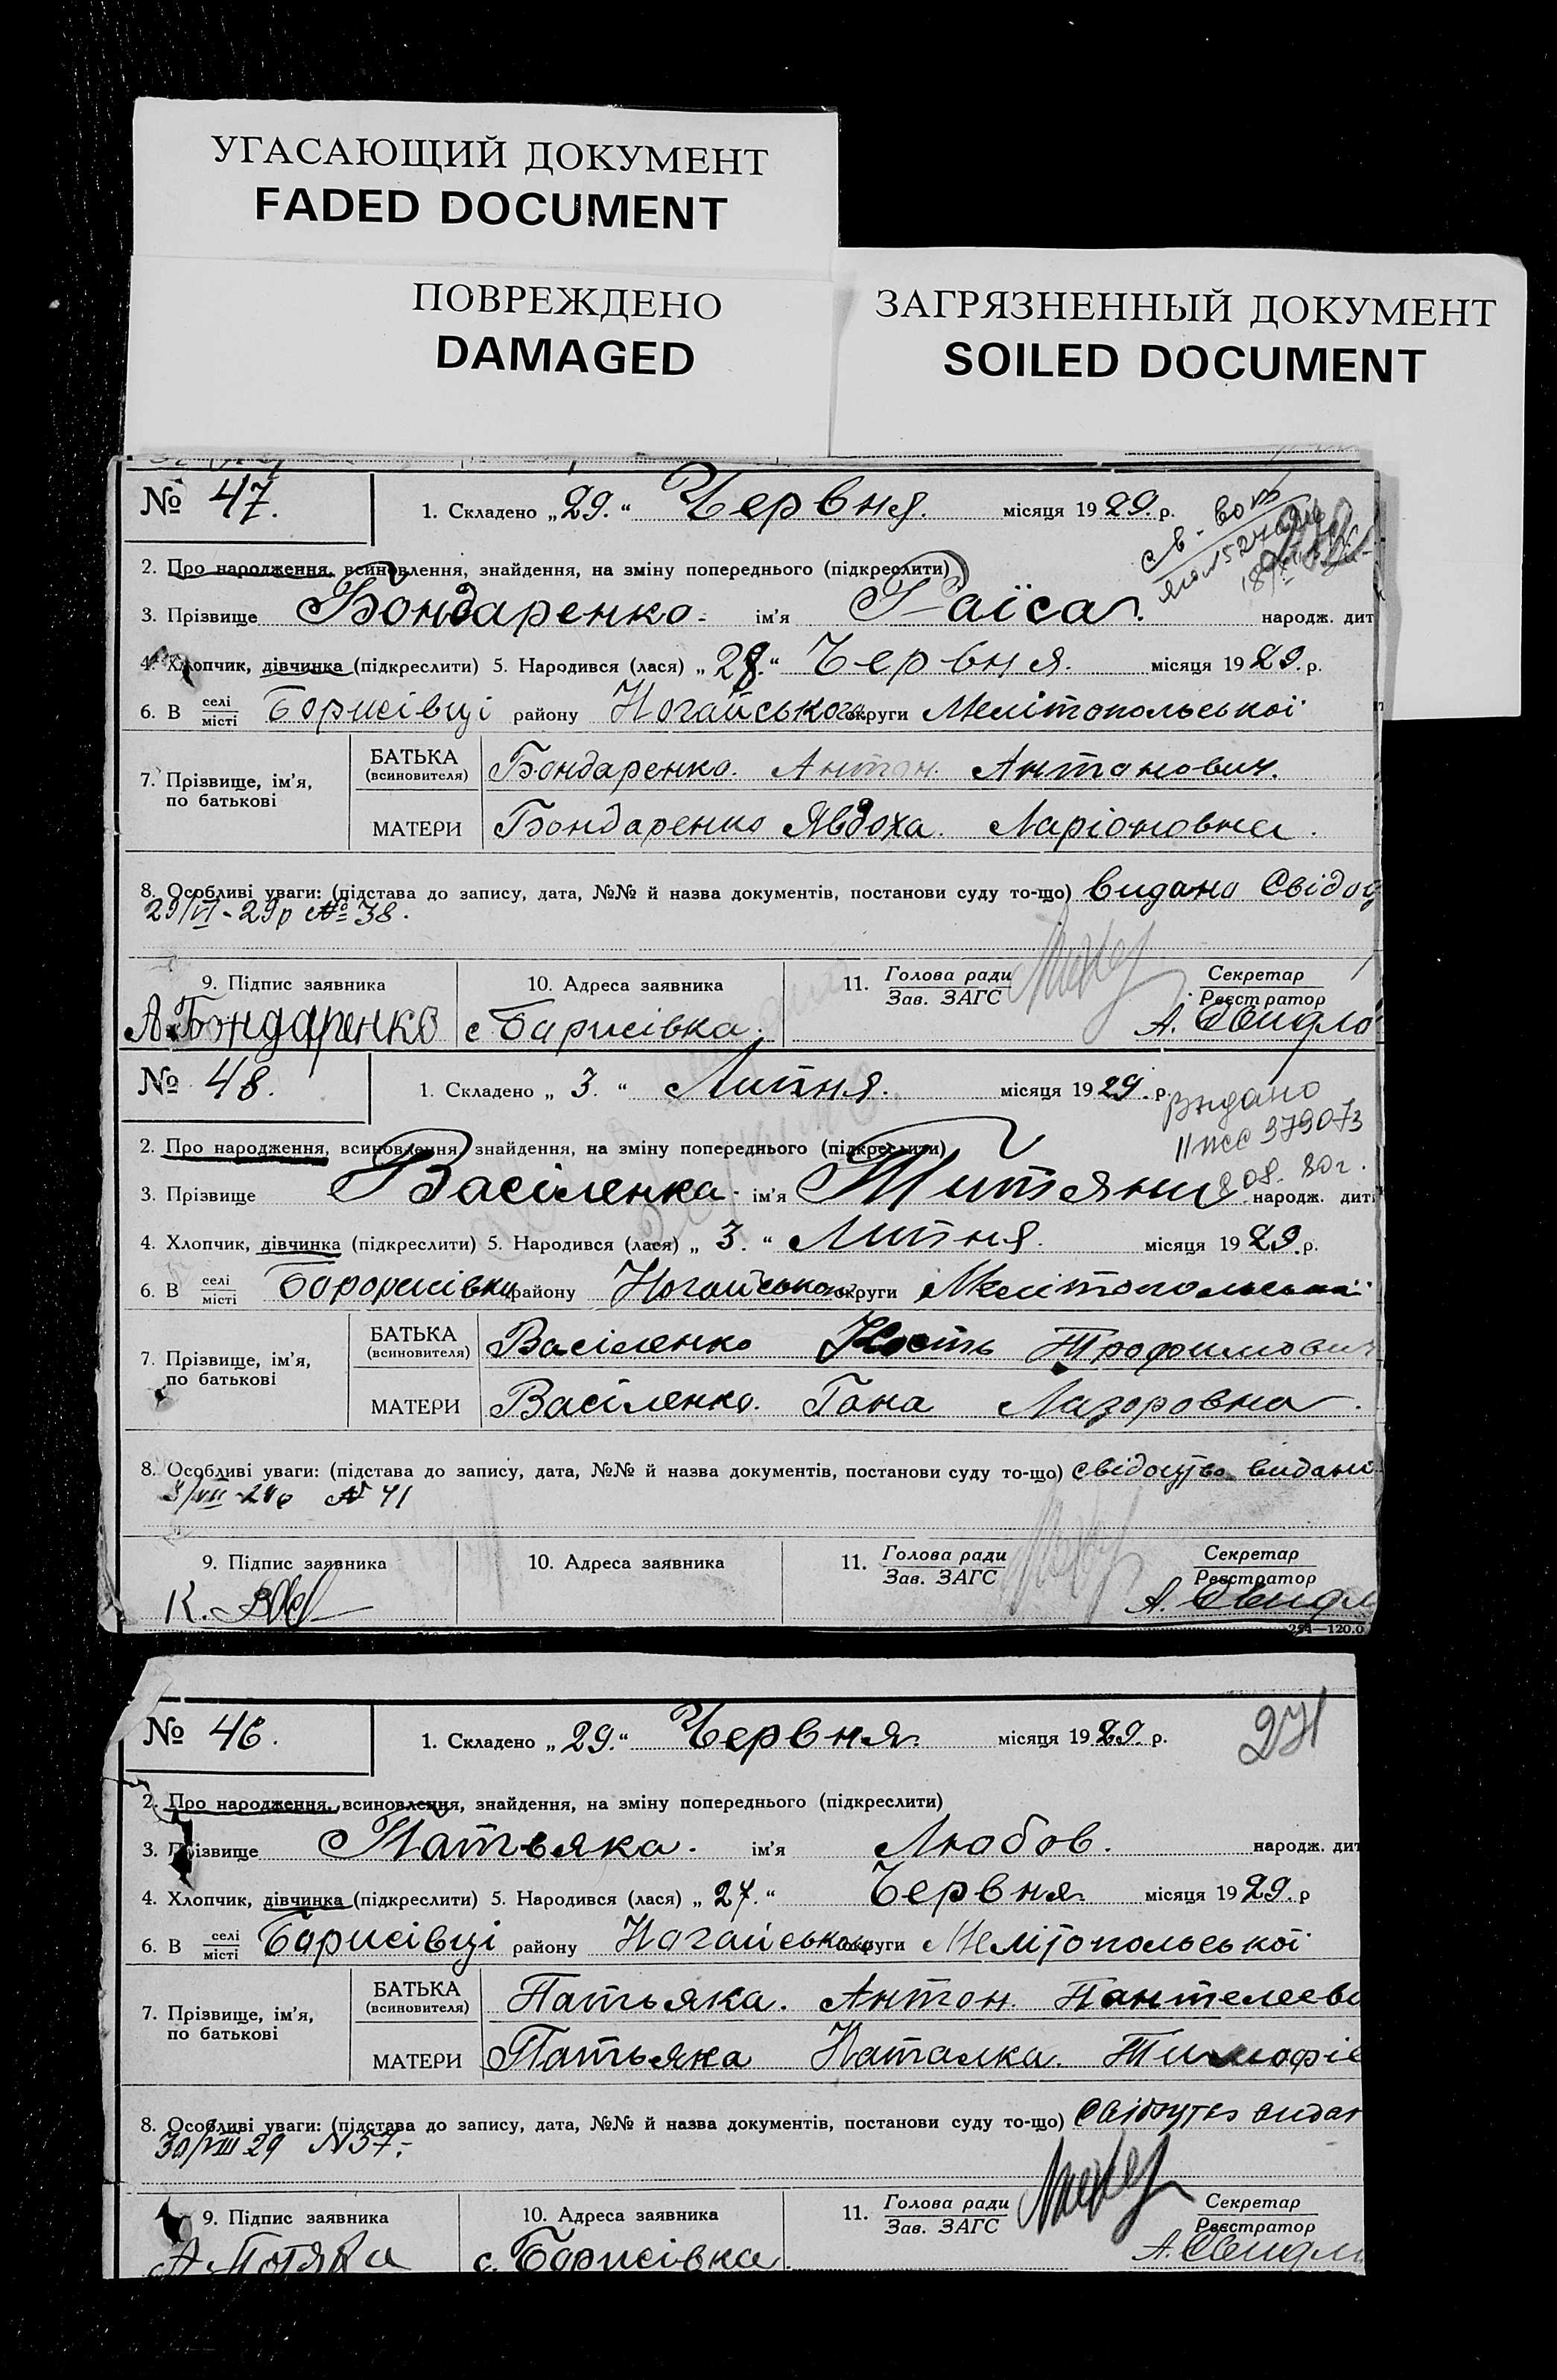 УГАСАЮЩИЙ ДОКУМЕНТ
FADED DOCUMENT
ПОВРЕЖДЕНО
DAMAGED
ЗАГРЯЗНЕННЫЙ ДОКУМЕНТ
SOILED DOCUMENT
№ 47. 1. Складено „29.“ Червня. місяця 1929. р.
2. Про народження, всиновлення, знайдення, на зміну попереднього (підкреслити)
3. Прізвище Бондаренко. ім'я Раїса. народж. дит
4. Хлопчик, дівчинка (підкреслити) 5. Народився (лася) „28.“ Червня. місяця 1929. р.
6. В селі місті Борисівці району Ногайського округи Мелітопольської
7. Прізвище, ім'я, по батькові
БАТЬКА (всиновителя) Бондаренко. Антон. Антонович.
МАТЕРИ Бондаренко Явдоха. Ларіоновна.
8. Особливі уваги: (підстава до запису, дата, №№ й назва документів, постанови суду то-що) видано Свідоц
29/VI-29р № 38.
9. Підпис заявника 10. Адреса заявника 11. Голова ради Зав. ЗАГС Секретар Реєстратор
А. Бондаренко с. Борисівка. А. Свидло
№ 48. 1. Складено „3.“ Липня. місяця 1929. р.
Видано
379073
08. 80г.
2. Про народження, всиновлення, знайдення, на зміну попереднього (підкреслити)
3. Прізвище Василенка. ім'я народж. дит
4. Хлопчик, дівчинка (підкреслити) 5. Народився (лася) „3.“ Липня. місяця 1929. р.
6. В селі місті району Ногайського округи Мелітопольської
7. Прізвище, ім'я, по батькові
БАТЬКА (всиновителя) Васіленко Кость Трофимович
МАТЕРИ Васіленко. Гана Лазоровна.
8. Особливі уваги: (підстава до запису, дата, №№ й назва документів, постанови суду то-що) свідоцтво видано
3/VII-29р № 41
9. Підпис заявника 10. Адреса заявника 11. Голова ради Зав. ЗАГС Секретар Реєстратор
К. А. Свидл
254—120.0
№ 46. 1. Складено „29.“ Червня. місяця 1929. р. 271
2. Про народження, всиновлення, знайдення, на зміну попереднього (підкреслити)
3. Прізвище Патьяка. ім'я Любов. народж. дит
4. Хлопчик, дівчинка (підкреслити) 5. Народився (лася) „27.“ Червня. місяця 1929. р
6. В селі місті Борисівці району Ногайського округи Мелітопольської
7. Прізвище, ім'я, по батькові
БАТЬКА (всиновителя) Патьяка. Антон. Пантелеево
МАТЕРИ Патьяка Наталка. Тимофіе
8. Особливі уваги: (підстава до запису, дата, №№ й назва документів, постанови суду то-що) Свідоцтво видан
30/VIII 29 № 37.
9. Підпис заявника 10. Адреса заявника 11. Голова ради Зав. ЗАГС Секретар Реєстратор
А Потяка с. Борисівка. А. Свидл